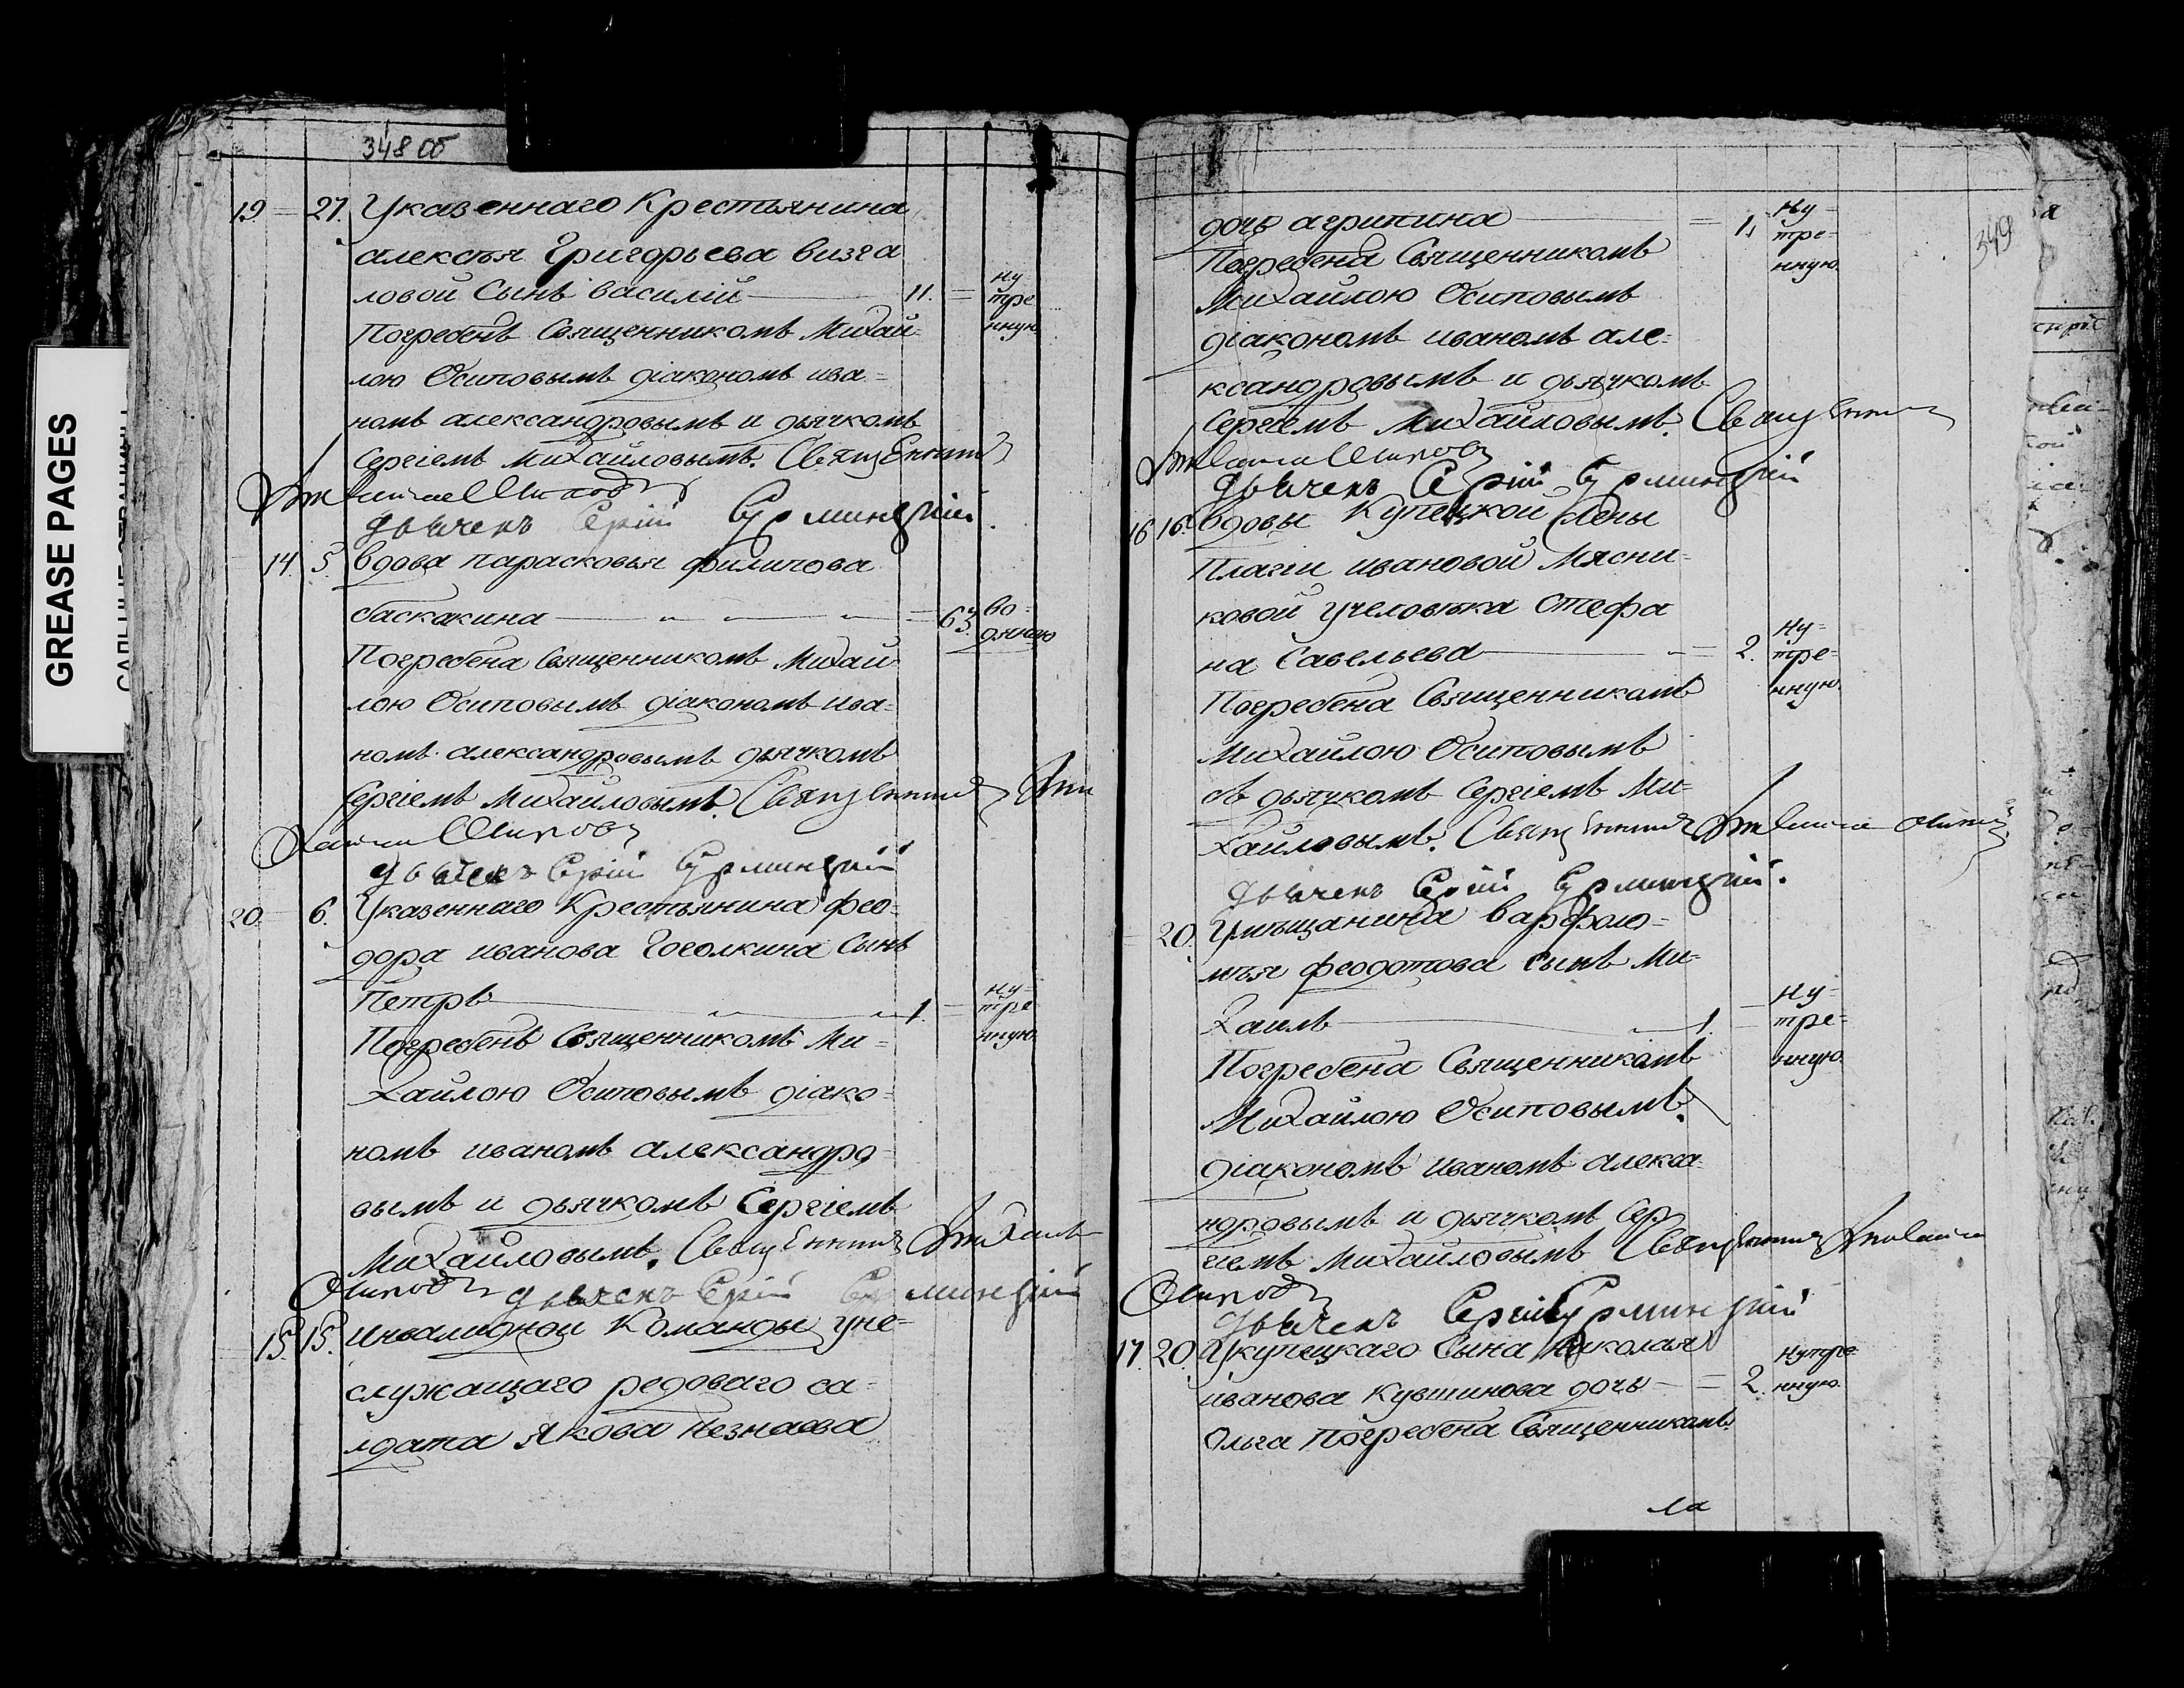 348 об
19 – 27. Указеннаго Крестьянина
алексѣя Григорьева визга
ловой Сынъ василій — 11. = ну
тре
нную
Погребенъ Священникомъ Михай=
лою Осиповымъ діакономъ ива=
номъ александровымъ и дьячкомъ
Сергіемъ Михайловымъ. Священникъ
Михаилъ Осиповъ
дьячекъ Сергій
14. 5. вдова парасковья филипова
баскакина — = 63. во=
дяную
Погребена Священникомъ Михай
лою Осиповымъ діакономъ ива=
номъ александровымъ дьячкомъ
Сергіемъ Михайловымъ. Священникъ
Осиповъ
дьячекъ Сергій
20 – 6. Указеннаго Крестьянина фео=
дора иванова Гоголкина Сынъ
Петръ — 1. – ну=
тре
нную.
Погребенъ Священникомъ Ми=
хайлою Осиповымъ діако=
номъ иваномъ александро=
вымъ и дьячкомъ Сергіемъ
Михайловымъ. Священникъ Михаилъ
Осиповъ дьячекъ Сергій
15. 15. инвалидной Команды уне=
служащаго редоваго са=
лдата Якова Незнаева
349
дочь агрипина — = 1. ну=
тре=
нную.
Погребена Священникомъ
Михайлою Осиповымъ
діакономъ иваномъ але=
ксандровымъ и дьячкомъ
Сергіемъ Михайловымъ. Священникъ
Михаилъ Осиповъ
дьячекъ Сергій
16 16. вдовы Купецкой жены
Плагіи ивановой Мясни=
ковой учеловѣка Стефа
на Савельева — = 2. ну=
тре=
нную.
Погребена Священникомъ
Михайлою Осиповымъ
съ дьячкомъ Сергіемъ Ми=
хайловымъ. Священникъ Михаилъ Осиповъ
дьячекъ Сергій
– 20. Умѣщанина варфоло=
мѣя феодотова сынъ Ми=
хаилъ — 1. – ну=
тре=
нную
Погребена Священникомъ
Михайлою Осиповымъ.
діакономъ иваномъ алекса=
ндровымъ и дьячкомъ Сер
гіемъ Михайловымъ Священникъ Михаилъ
Осиповъ
дьячекъ Сергій
17. 20. Укупецкаго Сына Николая
иванова Кувшинова дочь – = 2. нутре
нную.
Ольга Погребена Священникомъ
GREASE PAGES